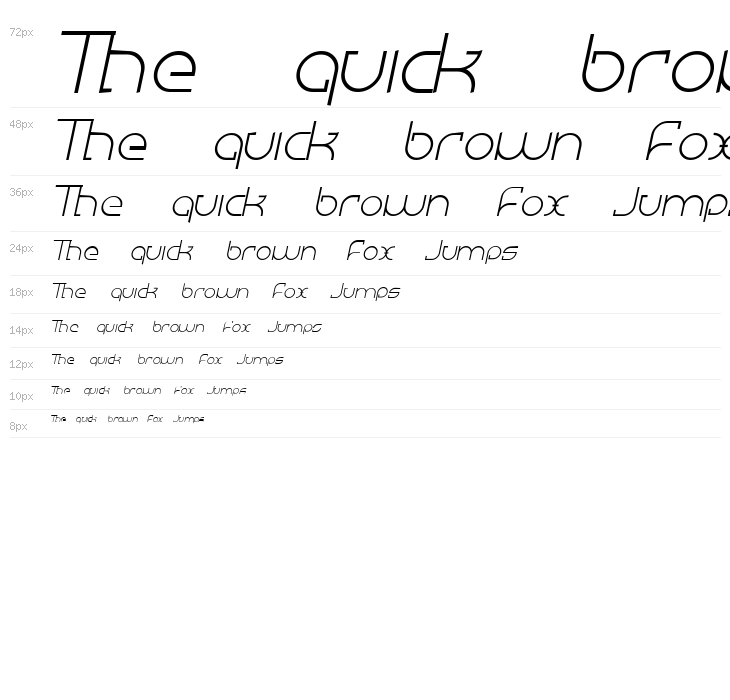 72px The quick brow
48px The quick brown Fox
36px The quick brown Fox Jumps
24px The quick brown Fox Jumps
18px The quick brown Fox Jumps
14px The quick brown Fox Jumps
12px The quick brown Fox Jumps
10px The quick brown Fox Jumps
8px The quick brown Fox Jumps